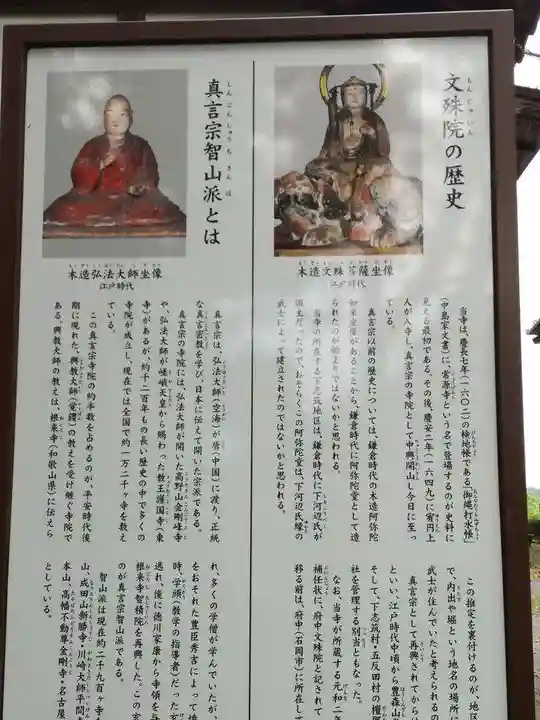 文殊院の歴史
もんじゅいん
木造文殊菩薩坐像
江戸時代
当寺は、慶長七年(一六〇二)の検地帳である「御縄打水帳」
(中島家文書)に、常源寺という名で登場するのが史料に
見える最初である。その後、慶安二年(一六四九)に宥円上
人が入寺し、真言宗の寺院として中興開山し今日に至っ
ている。
真言宗以前の歴史については、鎌倉時代の木造阿弥陀
如来坐像があることから、鎌倉時代に阿弥陀堂として造
られたのが始まりではないかと思われる。
当寺の所在する下志筑地区は、鎌倉時代に下河辺氏が
領主だったので、おそらくこの阿弥陀堂は、下河辺氏縁の
武士によって建立されたのではないかと思われる。
この推定を裏付けるのが、地区
で、内出や堀という地名の場所
武士が住んでいたと考えられるの
真言宗として再興されてからは
といい、江戸時代中頃から豊森山
そして、下志筑村・五反田村の檀
社を管理する別当ともなった。
なお、当寺が所蔵する元和二
補任状に、府中文殊院と記されて
移る前は、府中(石岡市)に所在して
真言宗智山派とは
しんごんしゅうちさんは
木造弘法大師坐像
江戸時代
真言宗は、弘法大師(空海)が唐(中国)に渡り、正統
な真言密教を学び、日本に伝えて開いた宗派である。
真言宗の寺院には、弘法大師が開いた高野山金剛峰寺
や、弘法大師が嵯峨天皇から賜わった教王護国寺(東
寺)があるが、約千二百年もの長い歴史の中で多くの
寺院が成立し、現在では全国で約一万二千ヶ寺を数え
ている。
この真言宗寺院の約半数を占めるのが、平安時代後
期に現れた、興教大師(覚鑁)の教えを受け継ぐ寺院で
ある。興教大師の教えは、根来寺(和歌山県)に伝えら
れ、多くの学僧が学んでいたが、
をおそれた豊臣秀吉によって焼
時、学頭(教学の指導者)だった玄
逃れ、後に徳川家康から寺領を与
根来寺智積院を再興した。この玄
のが真言宗智山派である。
智山派は現在約二千九百ヶ寺
山、成田山新勝寺・川崎大師平間
本山、高幡不動尊金剛寺・名古屋
としている。